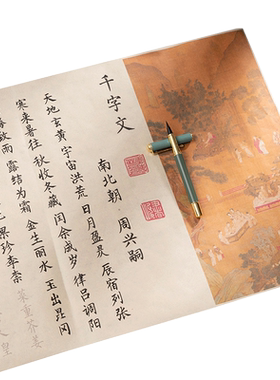 千字文
南北朝 周兴嗣
天地玄黄 宇宙洪荒 日月盈昃 辰宿列张
寒来暑往 秋收冬藏 闰余成岁 律吕调阳
致雨 露结为霜 金生丽水 玉出昆冈
果珍李柰 菜重芥姜
人皇